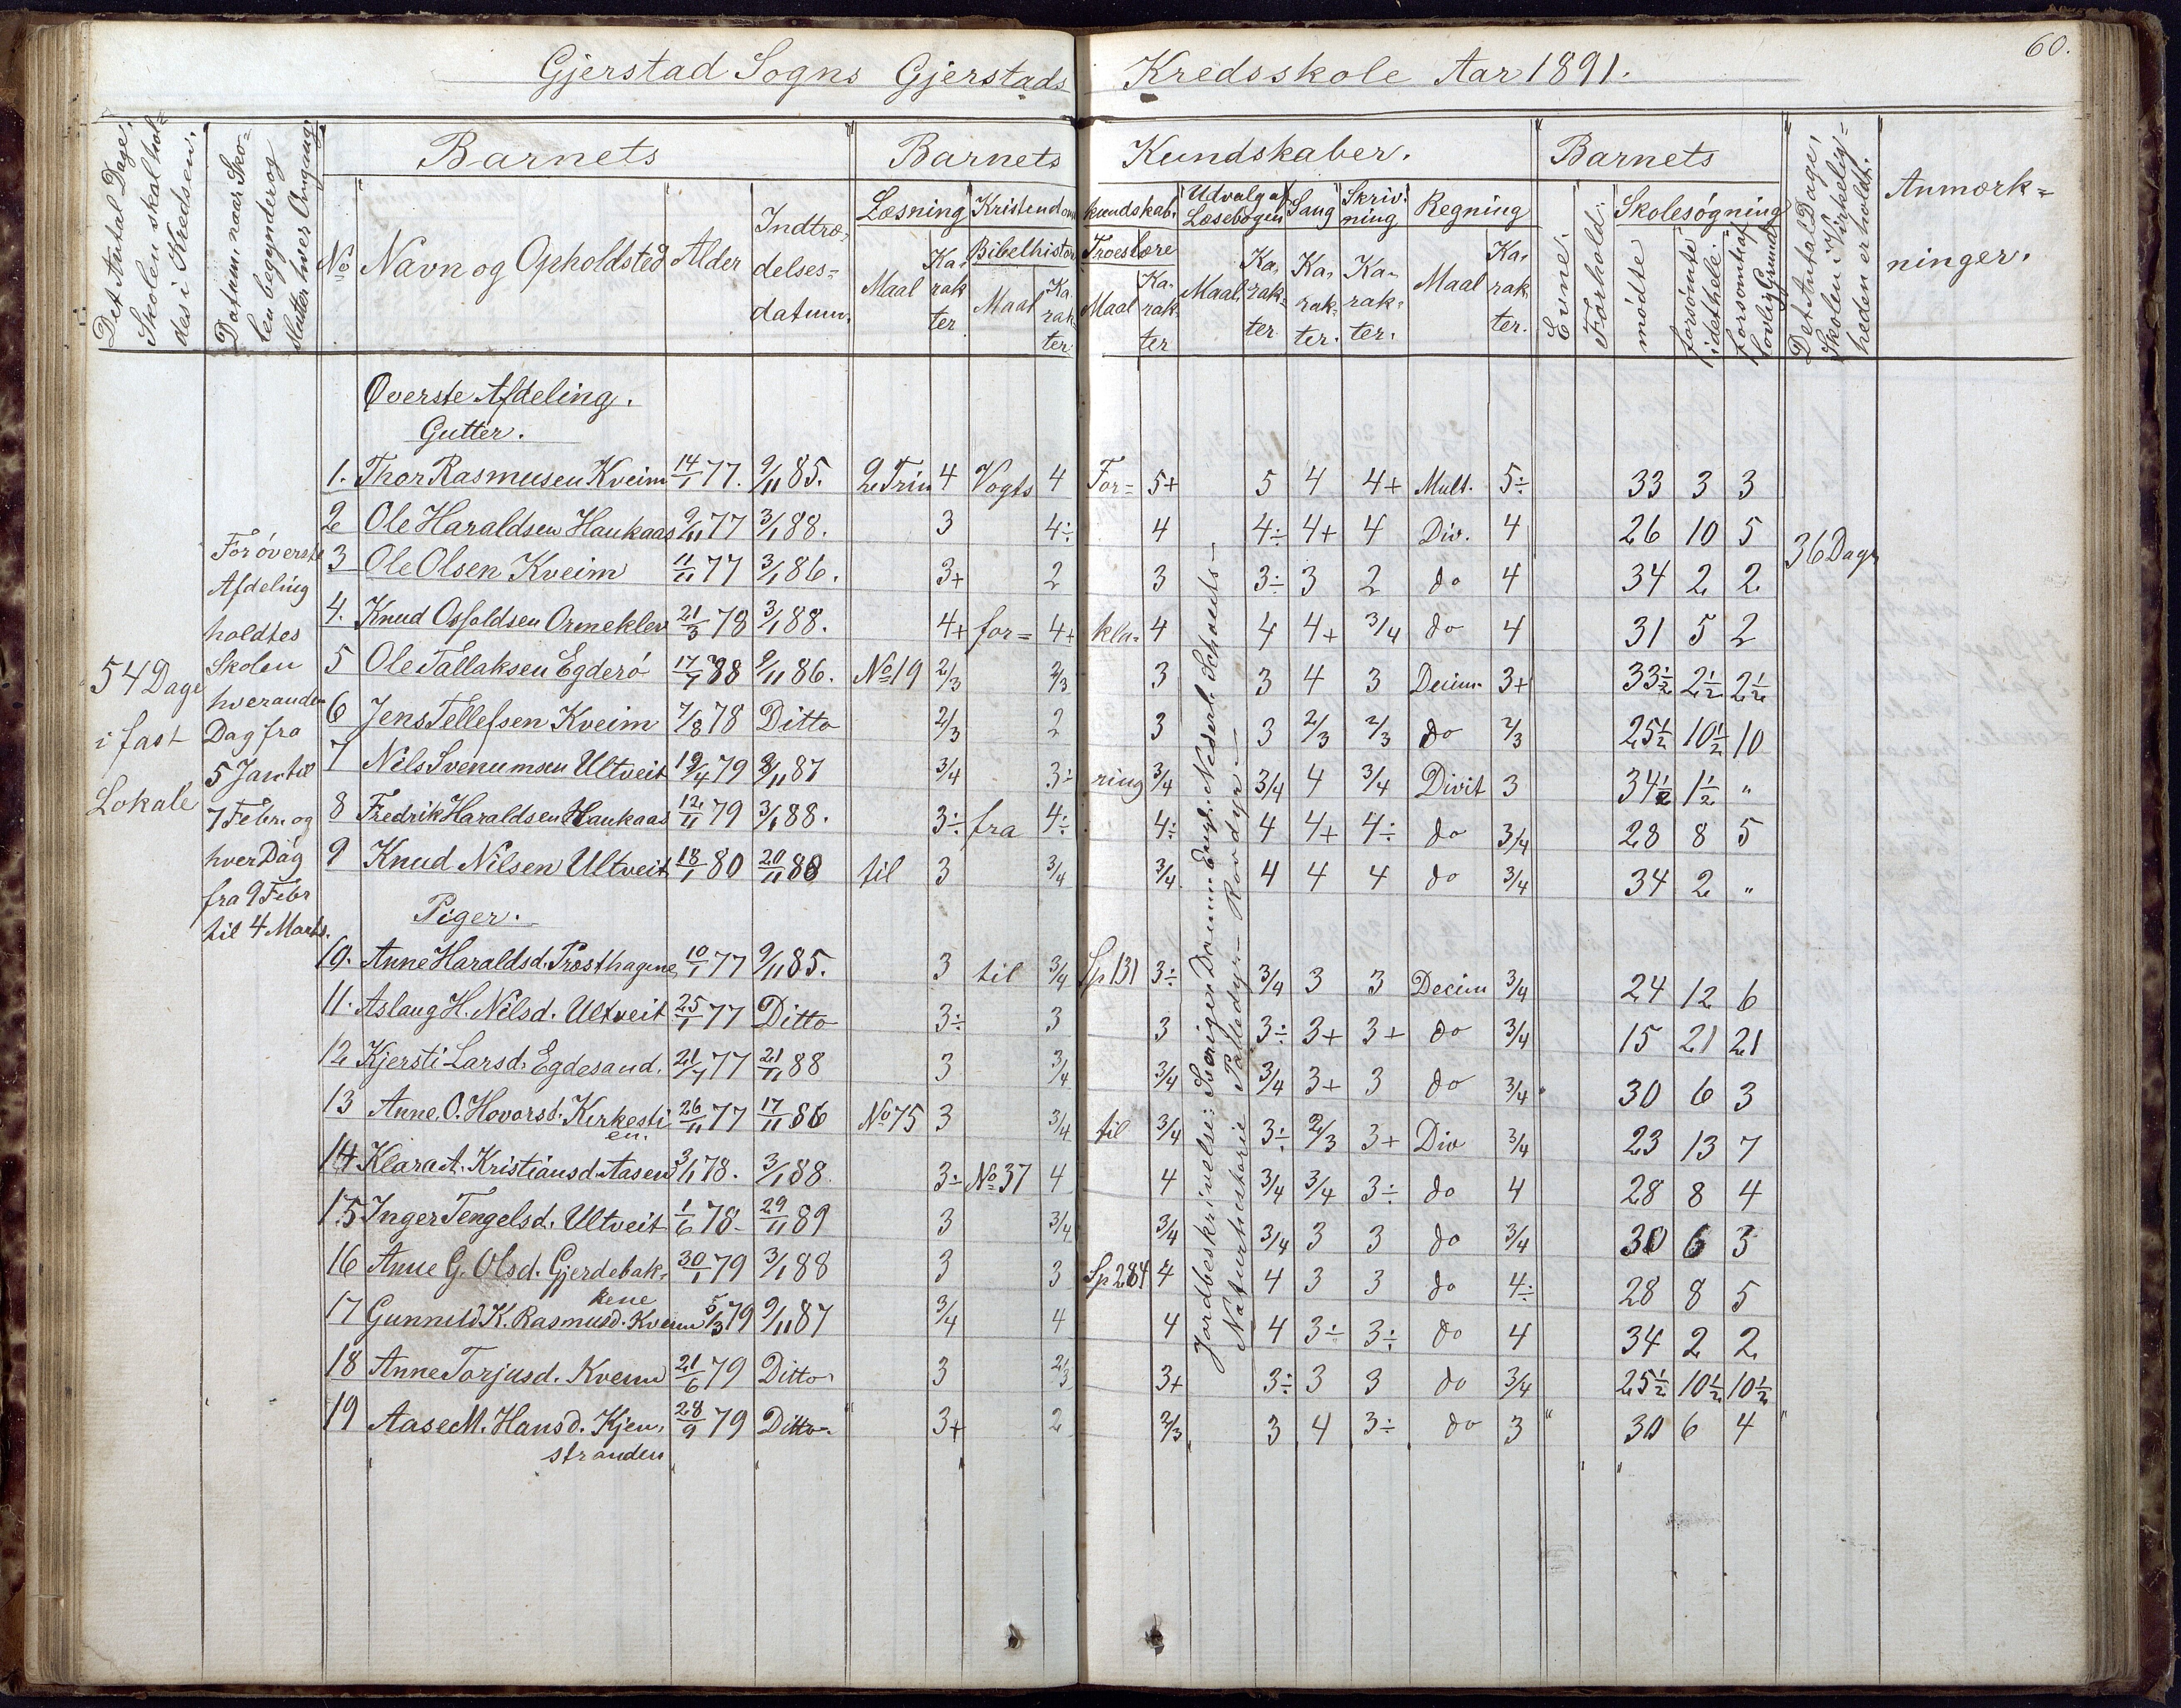 60.
Gjerstad Sogns Gjerstads Kredsskole Aar 1891.
Det Antal Dage, Skolen skal holdes i Kredsen.
Datum, naar Skolen begynder og slutter hver Omgang
Barnets Barnets Kundskaber. Barnets
Det Antal Dage, Skolen i Virkeligheden er holdt.
Anmærkninger.
No Navn og Opholdsted Alder Indtrædelsesdatum.
Læsning Kristendomskundskab. Udvalg af Læsebogen Sang Skrivning Regning
Bibelhistorie Troeslære
Maal Karakter Maal Karakter Maal Karakter Maal Karakter Karakter. Karakter. Maal Karakter.
Evne. Forhold. Skolesøgning
mødte forsømte i det hele. forsømt af lovlig Grund
54 Dage
i fast
Lokale
For øverste
Afdeling
holdtes
Skolen
hveranden
Dag fra
5 Jan til
7 Febr. og
hver Dag
fra 9 Febr
til 4 Marts.
36 Dage
Øverste Afdeling.
Gutter.
1. Thor Rasmusen Kveim 14/1 77. 9/11 85. 2 Trin 4 Vogts 4 For= 5+ 5 4 4+ Mult. 5÷ 33 3 3
2 Ole Haraldsen Haukaas 9/11 77 3/1 88. 3 4÷ 4 4÷ 4+ 4 Div. 4 26 10 5
3 Ole Olsen Kveim 11/11 77 3/1 86. 3+ 2 3 3÷ 3 2 do 4 34 2 2
4. Knud Osfoldsen Ormeklev 21/3 78 3/1 88. 4+ for= 4+ kla= 4 4 4+ 3/4 do 4 31 5 2
5 Ole Tallaksen Egderø 17/7 88 9/11 86. No 19 2/3 2/3 3 3 4 3 Decim. 3+ 33½ 2½ 2½
6 Jens Tellefsen Kveim 7/8 78 Ditto 2/3 2 3 3 2/3 2/3 do 2/3 25½ 10½ 10
7 Nils Svenumsen Ultveit 19/4 79 8/11 87 3/4 3÷ ring 3/4 3/4 4 3/4 Divit 3 34½ 1½ "
8 Fredrik Haraldsen Haukaas 12/11 79 3/1 88. 3÷ fra 4÷ 4÷ 4 4+ 4÷ do 3/4 28 8 5
9 Knud Nilsen Ultveit 18/1 80 20/11 88 til 3 3/4 3/4 4 4 4 do 3/4 34 2 "
Piger.
10. Anne Haraldsd. Prosthagene 10/1 77 9/11 85. 3 til 3/4 Sp 131 3÷ 3/4 3 3 Decim 3/4 24 12 6
11. Aslaug H. Nilsd. Ultveit 25/1 77 Ditto 3÷ 3 3 3÷ 3+ 3+ do 3/4 15 21 21
12 Kjersti Larsd. Egdesand. 21/7 77 21/11 88 3 3/4 3/4 3/4 3+ 3 do 3/4 30 6 3
13 Anne O. Hovorsd. Kirkestien. 26/11 77 17/11 86 No 75 3 3/4 til 3/4 3÷ 2/3 3+ Div 3/4 23 13 7
14 Klara A. Kristiansd. Aasen 3/1 78. 3/1 88. 3÷ No 37 4 4 3/4 3/4 3÷ do 4 28 8 4
15 Inger Tengelsd. Ultveit 1/6 78 29/11 89 3 3/4 3/4 3/4 3 3 do 3/4 30 6 3
16 Anne G. Olsd. Gjerdebakkene 30/1 79 3/1 88 3 3 Sp 284 4 4 3 3 do 4÷ 28 8 5
17 Gunnild K. Rasmusd. Kveim 5/3 79 9/11 87 3/4 4 4 4 3÷ 3÷ do 4 34 2 2
18 Anne Torjusd. Kveim 21/6 79 Ditto 3 2/3 3+ 3÷ 3 3 do 3/4 25½ 10½ 10½
19 Aase M. Hansd. Kjenstranden 28/9 79 Ditto 3+ 2 2/3 3 4 3÷ do 3 30 6 4
Jordbeskrivelse: Sverige Danm. Engl. Nederl. Schweits
Naturhistorie Patledyr Rovdyr